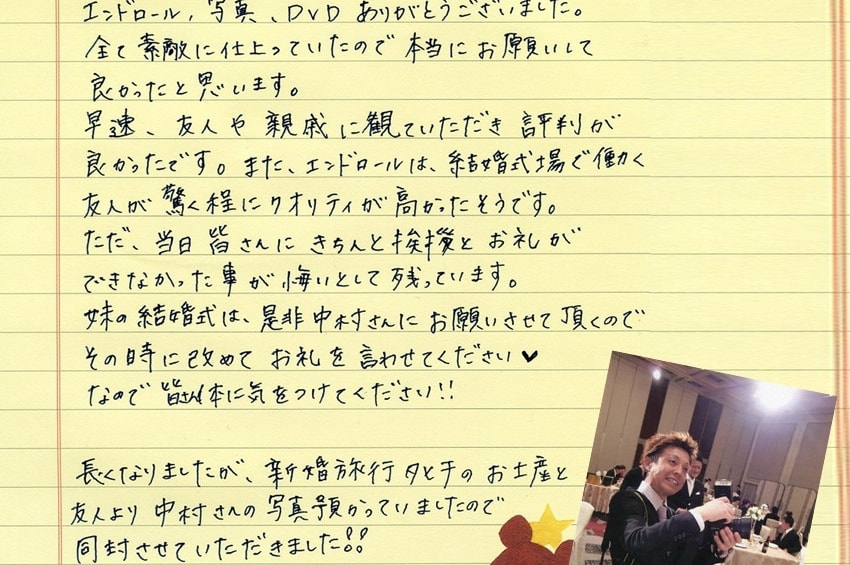 エンドロール、写真、DVDありがとうございました。
全て素敵に仕上っていたので本当にお願いして
良かったと思います。
早速、友人や親戚に観ていただき評判が
良かったです。また、エンドロールは、結婚式場で働く
友人が驚く程にクオリティが高かったそうです。
ただ、当日皆さんにきちんと挨拶とお礼が
できなかった事が悔いとして残っています。
妹の結婚式は、是非中村さんにお願いさせて頂くので
その時に改めてお礼を言わせてください♥
なので皆さん体に気をつけてください!!
長くなりましたが、新婚旅行タヒチのお土産と
友人より中村さんの写真預かっていましたので
同封させていただきました!!